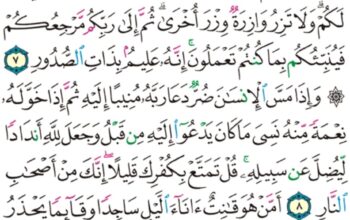 لَكُمْ ۗ وَلَا تَزِرُ وَازِرَةٌ وِزْرَ أُخْرَىٰ ۗ ثُمَّ إِلَىٰ رَبِّكُم مَّرْجِعُكُمْ
فَيُنَبِّئُكُم بِمَا كُنتُمْ تَعْمَلُونَ ۚ إِنَّهُ عَلِيمٌ بِذَاتِ الصُّدُورِ ٧
۞ وَإِذَا مَسَّ الْإِنسَانَ ضُرٌّ دَعَا رَبَّهُ مُنِيبًا إِلَيْهِ ثُمَّ إِذَا خَوَّلَهُ
نِعْمَةً مِّنْهُ نَسِيَ مَا كَانَ يَدْعُو إِلَيْهِ مِن قَبْلُ وَجَعَلَ لِلَّهِ أَندَادًا
لِّيُضِلَّ عَن سَبِيلِهِ ۚ قُلْ تَمَتَّعْ بِكُفْرِكَ قَلِيلًا ۖ إِنَّكَ مِنْ أَصْحَابِ
النَّارِ ٨ أَمَّنْ هُوَ قَانِتٌ آنَاءَ اللَّيْلِ سَاجِدًا وَقَائِمًا يَحْذَرُ